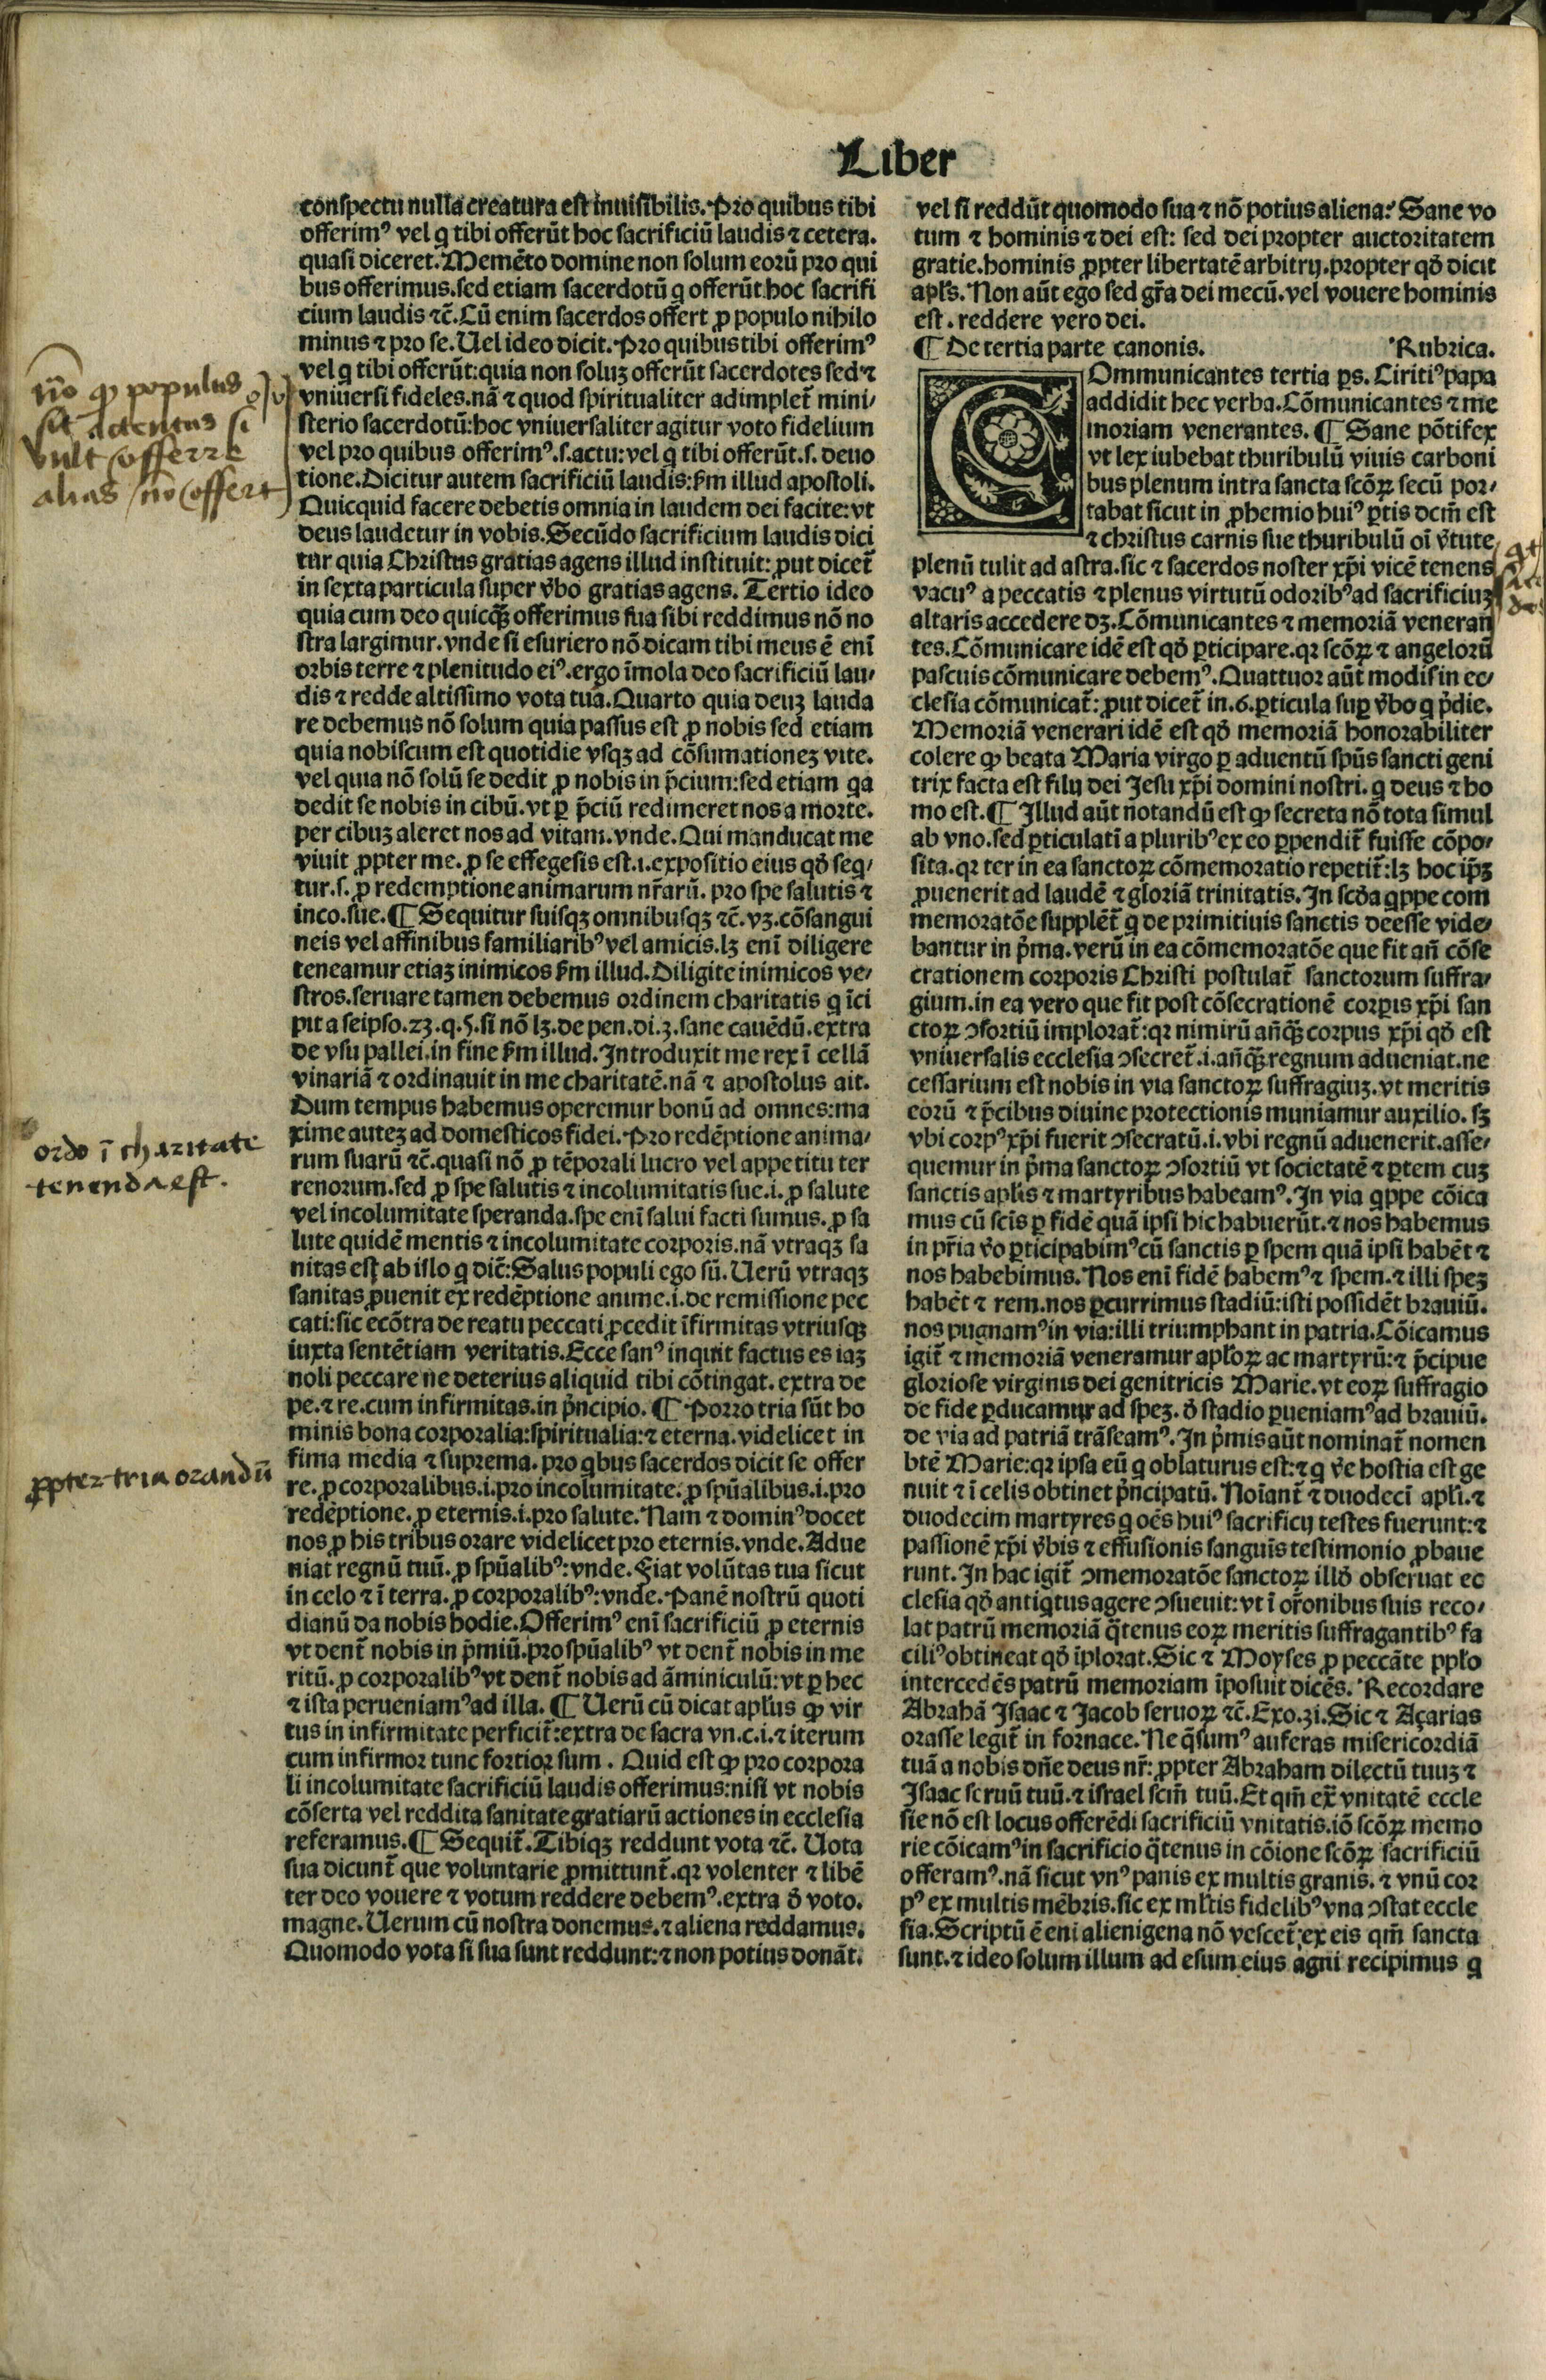 Liber
conspectu nulla creatura est inuisibilis. Pro quibus tibi
offerimꝰ vel q tibi offerūt hoc sacrificiū laudis ⁊ cetera.
quasi diceret. Memēto domine non solum eorū pro qui
bus offerimus. sed etiam sacerdotū q offerūt hoc sacrifi
cium laudis ⁊c̄. Cū enim sacerdos offert ꝓ populo nihilo
minus ⁊ pro se. Uel ideo dicit. Pro quibus tibi offerimꝰ
vel q tibi offerūt: quia non soluꝫ offerūt sacerdotes sed ⁊
vniuersi fideles. nā ⁊ quod spiritualiter adimplet̄ mini⸗
sterio sacerdotū: hoc vniuersaliter agitur voto fidelium
vel pro quibus offerimꝰ. s. actu: vel q tibi offerūt. s. deuo
tione. Dicitur autem sacrificiū laudis: ẜm illud apostoli.
Quicquid facere debetis omnia in laudem dei facite: vt
deus laudetur in vobis. Secūdo sacrificium laudis dici
tur quia Christus gratias agens illud instituit: ꝓut dicet̄
in sexta particula super v̄bo gratias agens. Tertio ideo
quia cum deo quicq̄ꝫ offerimus sua sibi reddimus nō no
stra largimur. vnde si esuriero nō dicam tibi meus ē enī
orbis terre ⁊ plenitudo eiꝰ. ergo īmola deo sacrificiū lau⸗
dis ⁊ redde altissimo vota tua. Quarto quia deuꝫ lauda
re debemus nō solum quia passus est ꝓ nobis sed etiam
quia nobiscum est quotidie vsqꝫ ad cōsumationeꝫ vite.
vel quia nō solū se dedit ꝓ nobis in p̄cium: sed etiam qa
dedit se nobis in cibū. vt ꝑ p̄ciū redimeret nos a morte.
per cibuꝫ aleret nos ad vitam. vnde. Qui manducat me
viuit ꝓpter me. ꝓ se effegesis est. i. expositio eius qđ seq⸗
tur. s. ꝓ redemptione animarum nr̄arū. pro spe salutis ⁊
inco. sue. ¶ Sequitur suisqꝫ omnibusqꝫ ⁊c̄. vꝫ. cōsangui
neis vel affinibus familiaribꝰ vel amicis. lꝫ enī diligere
teneamur etiaꝫ inimicos ẜm illud. Diligite inimicos ve⸗
stros. seruare tamen debemus ordinem charitatis q īci
pit a seipso. 23. q. 5. si nō lꝫ. de pen. di. 3. sane cauēdū. extra
de vsu pallei. in fine ẜm illud. Introduxit me rex ī cellā
vinariā ⁊ ordinauit in me charitatē. nā ⁊ apostolus ait.
Dum tempus habemus operemur bonū ad omnes: ma
xime auteꝫ ad domesticos fidei. Pro redēptione anima⸗
rum suarū ⁊c̄. quasi nō ꝓ tēporali lucro vel appetitu ter
renorum. sed ꝓ spe salutis ⁊ incolumitatis sue. i. ꝓ salute
vel incolumitate speranda. spe enī salui facti sumus. ꝓ sa
lute quidē mentis ⁊ incolumitate corporis. nā vtraqꝫ sa
nitas est ab illo q dic̄: Salus populi ego sū. Uerū vtraqꝫ
sanitas ꝓuenit ex redēptione anime. i. de remissione pec
cati: sic ecōtra de reatu peccati ꝓcedit īfirmitas vtriusqꝫ
iuxta sentētiam veritatis. Ecce sanꝰ inquit factus es iaꝫ
noli peccare ne deterius aliquid tibi cōtingat. extra de
pe. ⁊ re. cum infirmitas. in p̄ncipio. ¶ Porro tria sūt ho
minis bona corporalia: spiritualia: ⁊ eterna. videlicet in
fima media ⁊ suprema. pro qbus sacerdos dicit se offer
re. ꝓ corporalibus. i. pro incolumitate. ꝓ spūalibus. i. pro
redēptione. ꝓ eternis. i. pro salute. Nam ⁊ dominꝰ docet
nos ꝓ his tribus orare videlicet pro eternis. vnde. Adue
niat regnū tuū. ꝓ spūalibꝰ: vnde. Fiat volūtas tua sicut
in celo ⁊ ī terra. ꝓ corporalibꝰ: vnde. Panē nostrū quoti
dianū da nobis hodie. Offerimꝰ enī sacrificiū ꝓ eternis
vt dent̄ nobis in p̄miū. pro spūalibꝰ vt dent̄ nobis in me
ritū. ꝓ corporalibꝰ vt dent̄ nobis ad āminiculū: vt ꝑ hec
⁊ ista perueniamꝰ ad illa. ¶ Uerū cū dicat apl̄us ꝙ vir
tus in infirmitate perficit̄: extra de sacra vn. c. i. ⁊ iterum
cum infirmor tunc fortior sum. Quid est ꝙ pro corpora
li incolumitate sacrificiū laudis offerimus: nisi vt nobis
cōserta vel reddita sanitate gratiarū actiones in ecclesia
referamus. ¶ Sequit̄. Tibiqꝫ reddunt vota ⁊c̄. Uota
sua dicunt̄ que voluntarie ꝓmittunt̄. qꝛ volenter ⁊ libē
ter deo vouere ⁊ votum reddere debemꝰ. extra đ voto.
magne. Uerum cū nostra donemus. ⁊ aliena reddamus.
Quomodo vota si sua sunt reddunt: ⁊ non potius donāt.
vel si reddūt quomodo sua ⁊ nō potius aliena? Sane vo
tum ⁊ hominis ⁊ dei est: sed dei propter auctoritatem
gratie. hominis ꝓpter libertatē arbitrij. propter qđ dicit
apl̄s. Non aūt ego sed gr̄a dei mecū. vel vouere hominis
est. reddere vero dei.
¶ De tertia parte canonis. Rubrica.
COmmunicantes tertia ꝑs. Ciritiꝰ papa
addidit hec verba. Cōmunicantes ⁊ me
moriam venerantes. ¶ Sane pōtifex
vt lex iubebat thuribulū viuis carboni
bus plenum intra sancta scōꝝ secū por⸗
tabat sicut in ꝓhemio huiꝰ ꝑtis dcm̄ est
⁊ christus carnis sue thuribulū oī v̄tute
plenū tulit ad astra. sic ⁊ sacerdos noster xp̄i vicē tenens
vacuꝰ a peccatis ⁊ plenus virtutū odoribꝰ ad sacrificiuꝫ
altaris accedere dꝫ. Cōmunicantes ⁊ memoriā veneran
tes. Cōmunicare idē est qđ ꝑticipare. qꝛ scōꝝ ⁊ angelorū
pascuis cōmunicare debemꝰ. Quattuor aūt modis in ec⸗
clesia cōmunicat̄: ꝓut dicet̄ in. 6. ꝑticula suꝑ v̄bo q p̄die.
Memoriā venerari idē est qđ memoriā honorabiliter
colere ꝙ beata Maria virgo ꝑ aduentū spūs sancti geni
trix facta est filij dei Jesu xp̄i domini nostri. q deus ⁊ ho
mo est. ¶ Illud aūt notandū est ꝙ secreta nō tota simul
ab vno. sed ꝑticulatī a pluribꝰ ex eo ꝑpendit̄ fuisse cōpo⸗
sita. qꝛ ter in ea sanctoꝝ cōmemoratio repetit̄: lꝫ hoc ip̄ꝫ
ꝓuenerit ad laudē ⁊ gloriā trinitatis. In scđa qppe com
memoratōe supplēt̄ q de primitiuis sanctis deesse vide⸗
bantur in p̄ma. verū in ea cōmemoratōe que fit an̄ cōse
crationem corporis Christi postulat̄ sanctorum suffra⸗
gium. in ea vero que fit post cōsecrationē corꝑis xp̄i san
ctoꝝ ↄsortiū implorat̄: qꝛ nimirū an̄q̄ꝫ corpus xp̄i qđ est
vniuersalis ecclesia ↄsecret̄. i. an̄q̄ꝫ regnum adueniat. ne
cessarium est nobis in via sanctoꝝ suffragiuꝫ. vt meritis
eorū ⁊ p̄cibus diuine protectionis muniamur auxilio. sꝫ
vbi corpꝰ xp̄i fuerit ↄsecratū. i. vbi regnū aduenerit. asse⸗
quemur in p̄ma sanctoꝝ ↄsortiū vt societatē ⁊ ꝑtem cuꝫ
sanctis apl̄is ⁊ martyribus habeamꝰ. In via qppe cōica
mus cū scīs ꝑ fidē quā ipsi hic habuerūt. ⁊ nos habemus
in pr̄ia v̄o ꝑticipabimꝰ cū sanctis ꝑ spem quā ipsi habēt ⁊
nos habebimus. Nos enī fidē habemꝰ ⁊ spem. ⁊ illi speꝫ
habēt ⁊ rem. nos ꝑcurrimus stadiū: isti possidēt brauiū.
nos pugnamꝰ in via: illi triumphant in patria. Cōicamus
igit̄ ⁊ memoriā veneramur apl̄oꝝ ac martyrū: ⁊ p̄cipue
gloriose virginis dei genitricis Marie. vt eoꝝ suffragio
de fide ꝑducamur ad speꝫ. đ stadio ꝑueniamꝰ ad brauiū.
de via ad patriā trāseamꝰ. In p̄mis aūt nominat̄ nomen
btē Marie: qꝛ ipsa eū q oblaturus est: ⁊ q v̄e hostia est ge
nuit ⁊ ī celis obtinet p̄ncipatū. Noīant̄ ⁊ duodecī apl̄i. ⁊
duodecim martyres q oēs huiꝰ sacrificij testes fuerunt: ⁊
passionē xp̄i v̄bis ⁊ effusionis sanguīs testimonio ꝓbaue
runt. In hac igit̄ ↄmemoratōe sanctoꝝ illđ obseruat ec
clesia qđ antiqtus agere ↄsueuit: vt ī or̄onibus suis reco⸗
lat patrū memoriā q̄tenus eoꝝ meritis suffragantibꝰ fa
ciliꝰ obtineat qđ īplorat. Sic ⁊ Moyses ꝓ peccāte ppl̄o
intercedēs patrū memoriam īposuit dicēs. Recordare
Abrahā Isaac ⁊ Jacob seruoꝝ ⁊c̄. Exo. 3i. Sic ⁊ Açarias
orasse legit̄ in fornace. Ne q̄sumꝰ auferas misericordiā
tuā a nobis dn̄e deus nr̄: ꝓpter Abraham dilectū tuuꝫ ⁊
Isaac seruū tuū. ⁊ israel scm̄ tuū. Et qm̄ ex̄ vnitatē eccle
sie nō est locus offerēdi sacrificiū vnitatis. iō scōꝝ memo
rie cōicamꝰ in sacrificio q̄tenus in cōione scōꝝ sacrificiū
offeramꝰ. nā sicut vnꝰ panis ex multis granis. ⁊ vnū cor
pꝰ ex multis mēbris. sic ex ml̄tis fidelibꝰ vna ↄstat eccle
sia. Scriptū ē eni alienigena nō vescet̄ ex eis qm̄ sancta
sunt. ⁊ ideo solum illum ad esum eius agni recipimus q
nō ꝙ populus
sit attentus si
vult offerre
alias nō offert
ordo ī charitate
tenenda est.
ꝓpter tria orandū